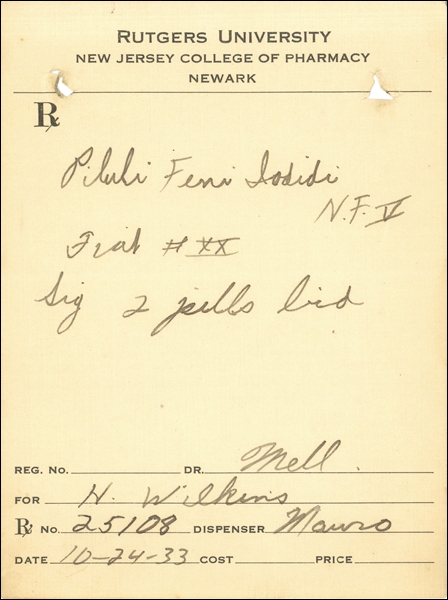 RUTGERS UNIVERSITY
NEW JERSEY COLLEGE OF PHARMACY
NEWARK
℞
Piluli Ferri Iodidi
N.F. V
Fiat # XX
Sig 2 pills bid
REG. NO. DR. Mell.
FOR H. Wilkins
℞ NO. 25108 DISPENSER Mauro
DATE 10-24-33 COST PRICE